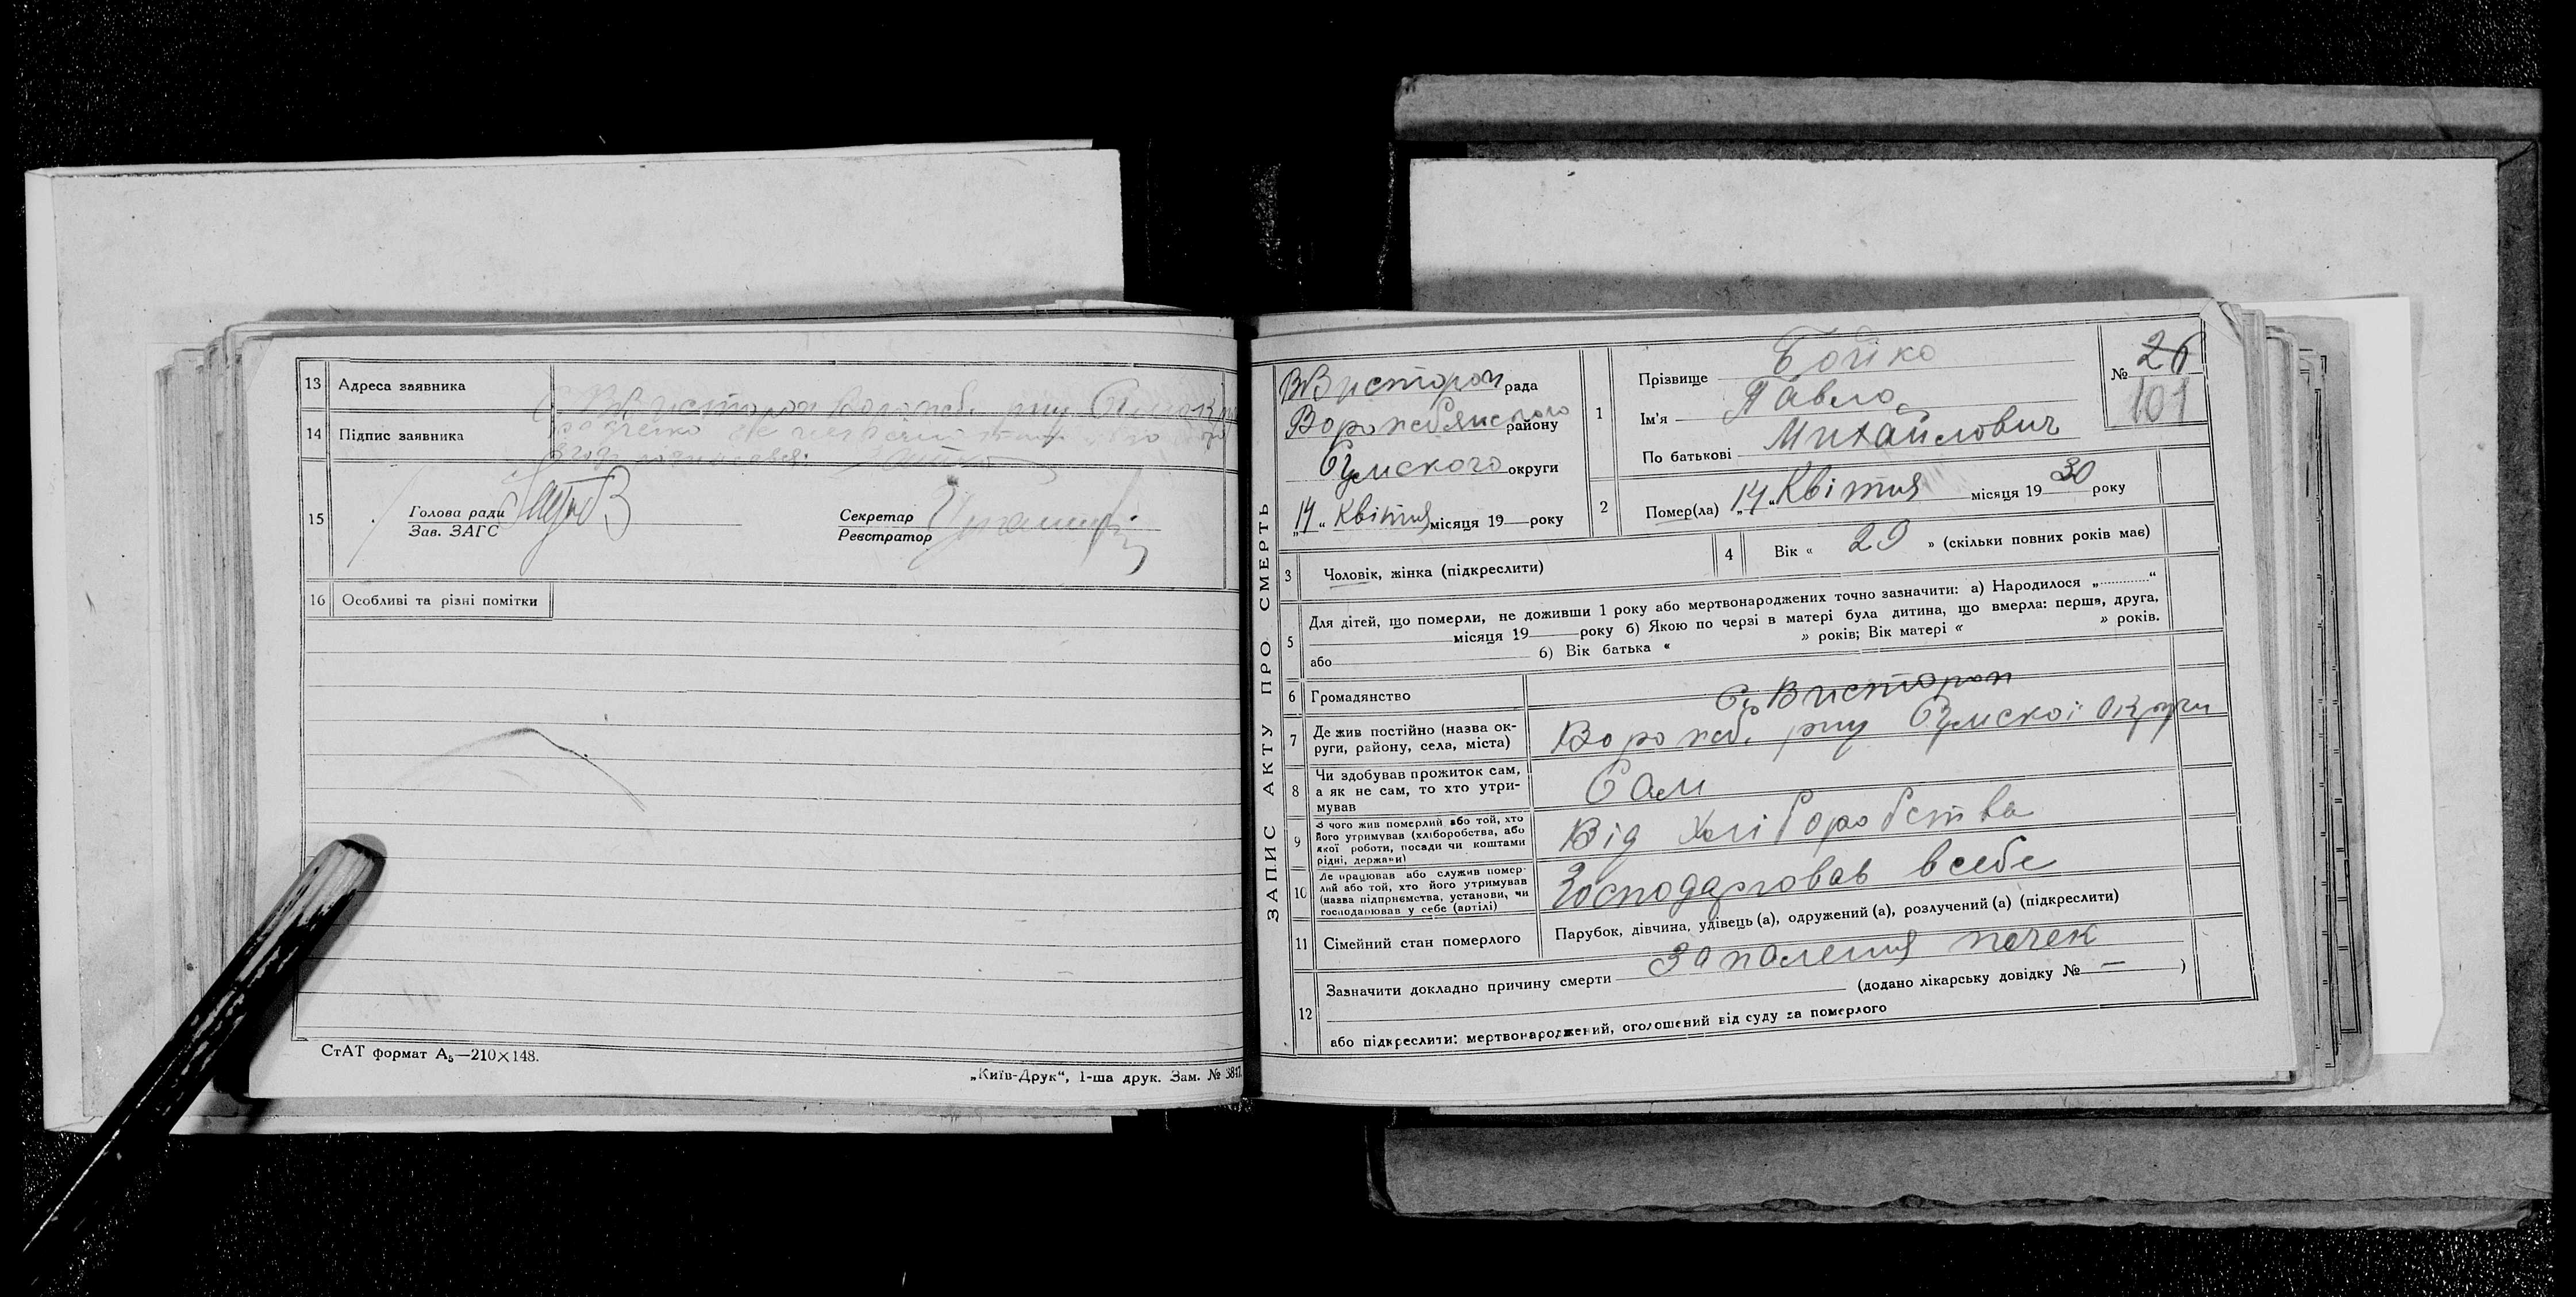 13 Адреса заявника
14 Підпис заявника
15 Голова ради
Зав. ЗАГС
Секретар
Реєстратор
16 Особливі та різні помітки
СтАТ формат А₅—210×148.
„Київ-Друк“, 1-ша друк. Зам. №
ЗАПИС АКТУ ПРО СМЕРТЬ
Вистороп рада
району
Сумского округи
„14“ Квітня місяця 19 року
1 Прізвище Бойко
Ім'я Павло
По батькові Михайлович
№ 26
101
2 Помер(ла) „14“ Квітня місяця 1930 року
3 Чоловік, жінка (підкреслити)
4 Вік « 29 » (скільки повних років має)
5 Для дітей, що померли, не доживши 1 року або мертвонароджених точно зазначити: а) Народилося „ “
місяця 19 року б) Якою по черзі в матері була дитина, що вмерла: перша, друга,
або б) Вік батька « » років; Вік матері « » років.
6 Громадянство
7 Де жив постійно (назва ок-
руги, району, села, міста)
С. Вистороп
Ворожб. р-ну Сумскої Округи
8 Чи здобував прожиток сам,
а як не сам, то хто утри-
мував
Сам
9 З чого жив померлий або той, хто
його утримував (хліборобства, або
якої роботи, посади чи коштами
рідні, держави)
Від Хліборобства
10 Де працював або служив помер-
лий або той, хто його утримував
(назва підприємства, установи, чи
господарював у себе (артілі)
Господарював всебе
11 Сімейний стан померлого
Парубок, дівчина, удівець (а), одружений (а), розлучений (а) (підкреслити)
12 Зазначити докладно причину смерти Запалення почек
(додано лікарську довідку № — )
або підкреслити: мертвонароджений, оголошений від суду за померлого